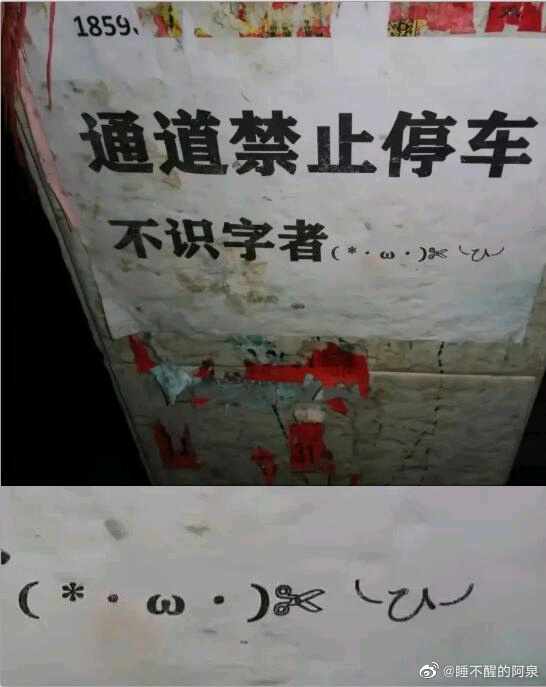 1859、
通道禁止停车
不识字者(*·ω·)✂╰ひ╯
31
(*·ω·)✂╰ひ╯
@睡不醒的阿泉